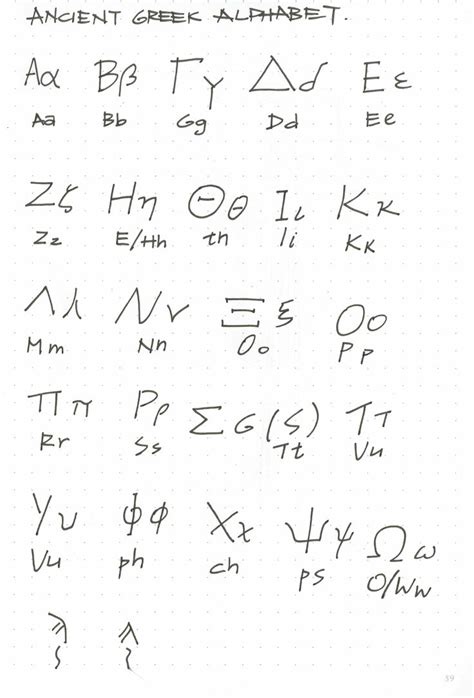 ANCIENT GREEK ALPHABET.
Αα Ββ Γγ Δδ Εε
Aa Bb Gg Dd Ee
Ζζ Ηη Θθ Ιι Κκ
Zz E/Hh th Ii Kk
Λλ Νν Ξξ Οο
Mm Nn Oo Pp
Ππ Ρρ Σσ(ς) Ττ
Rr Ss Tt Vu
Υυ Φφ Χχ Ψψ Ωω
Vu ph ch ps O/Ww
39